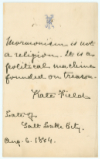 Mormonism is not
a religion. It is a
political machine
founded on treason.
Kate Field.
Salt Lake City.
Aug. 6 1884.